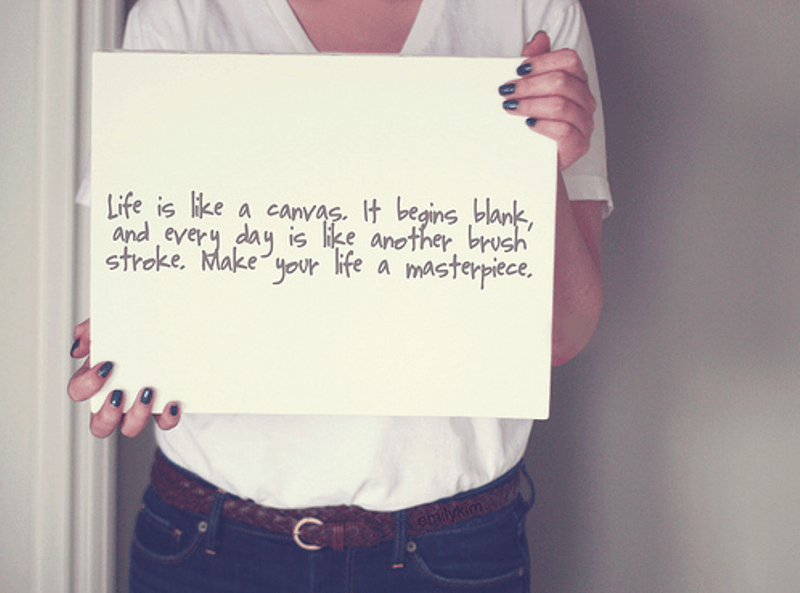 Life is like a canvas. It begins blank,
and every day is like another brush
stroke. Make your life a masterpiece.
emilykim